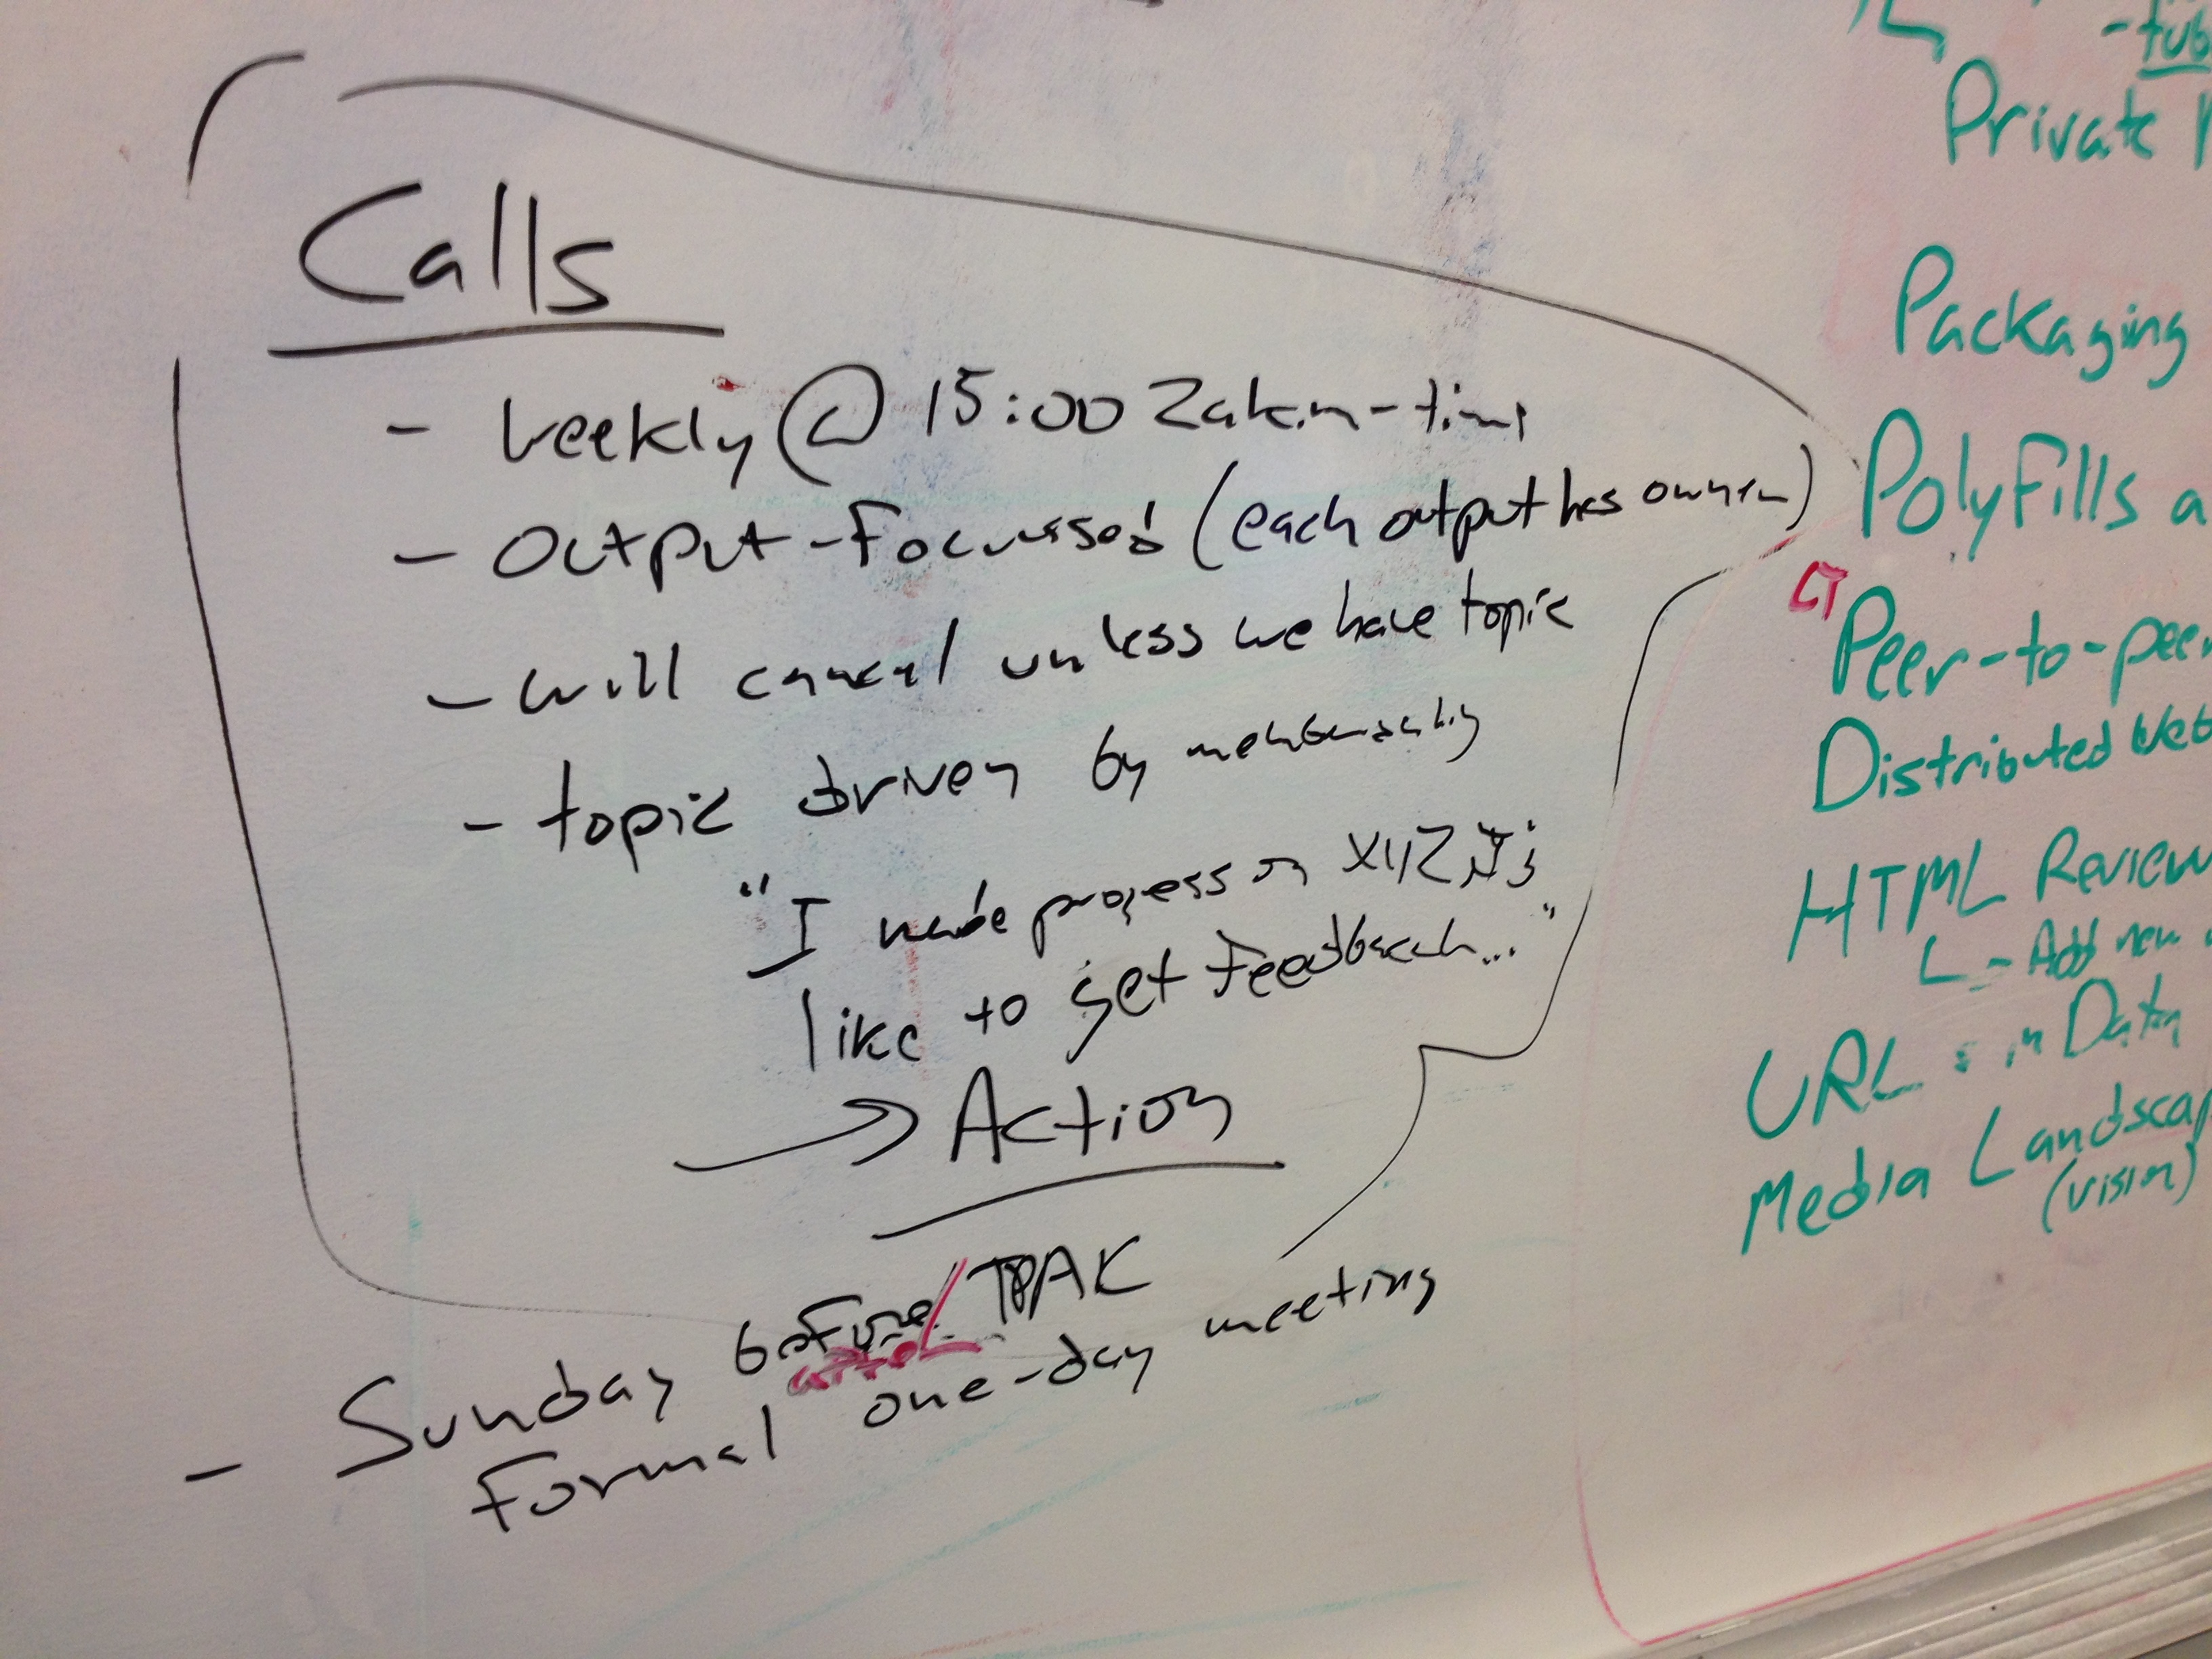 Calls
- weekly @ 15:00 Zakim-time
- output-focussed (each output has owner)
- will cancel unless we have topic
- topic driven by membership
"I made progress on XYZ
like to get feedback..."
→ Action
- Sunday before/ TPAC
after
Formal one-day meeting
Private
Packaging
Polyfills a
Peer-to-peer
Distributed Web
HTML Review
L - Add new
URLs in Data
Media Landscap
(vision)